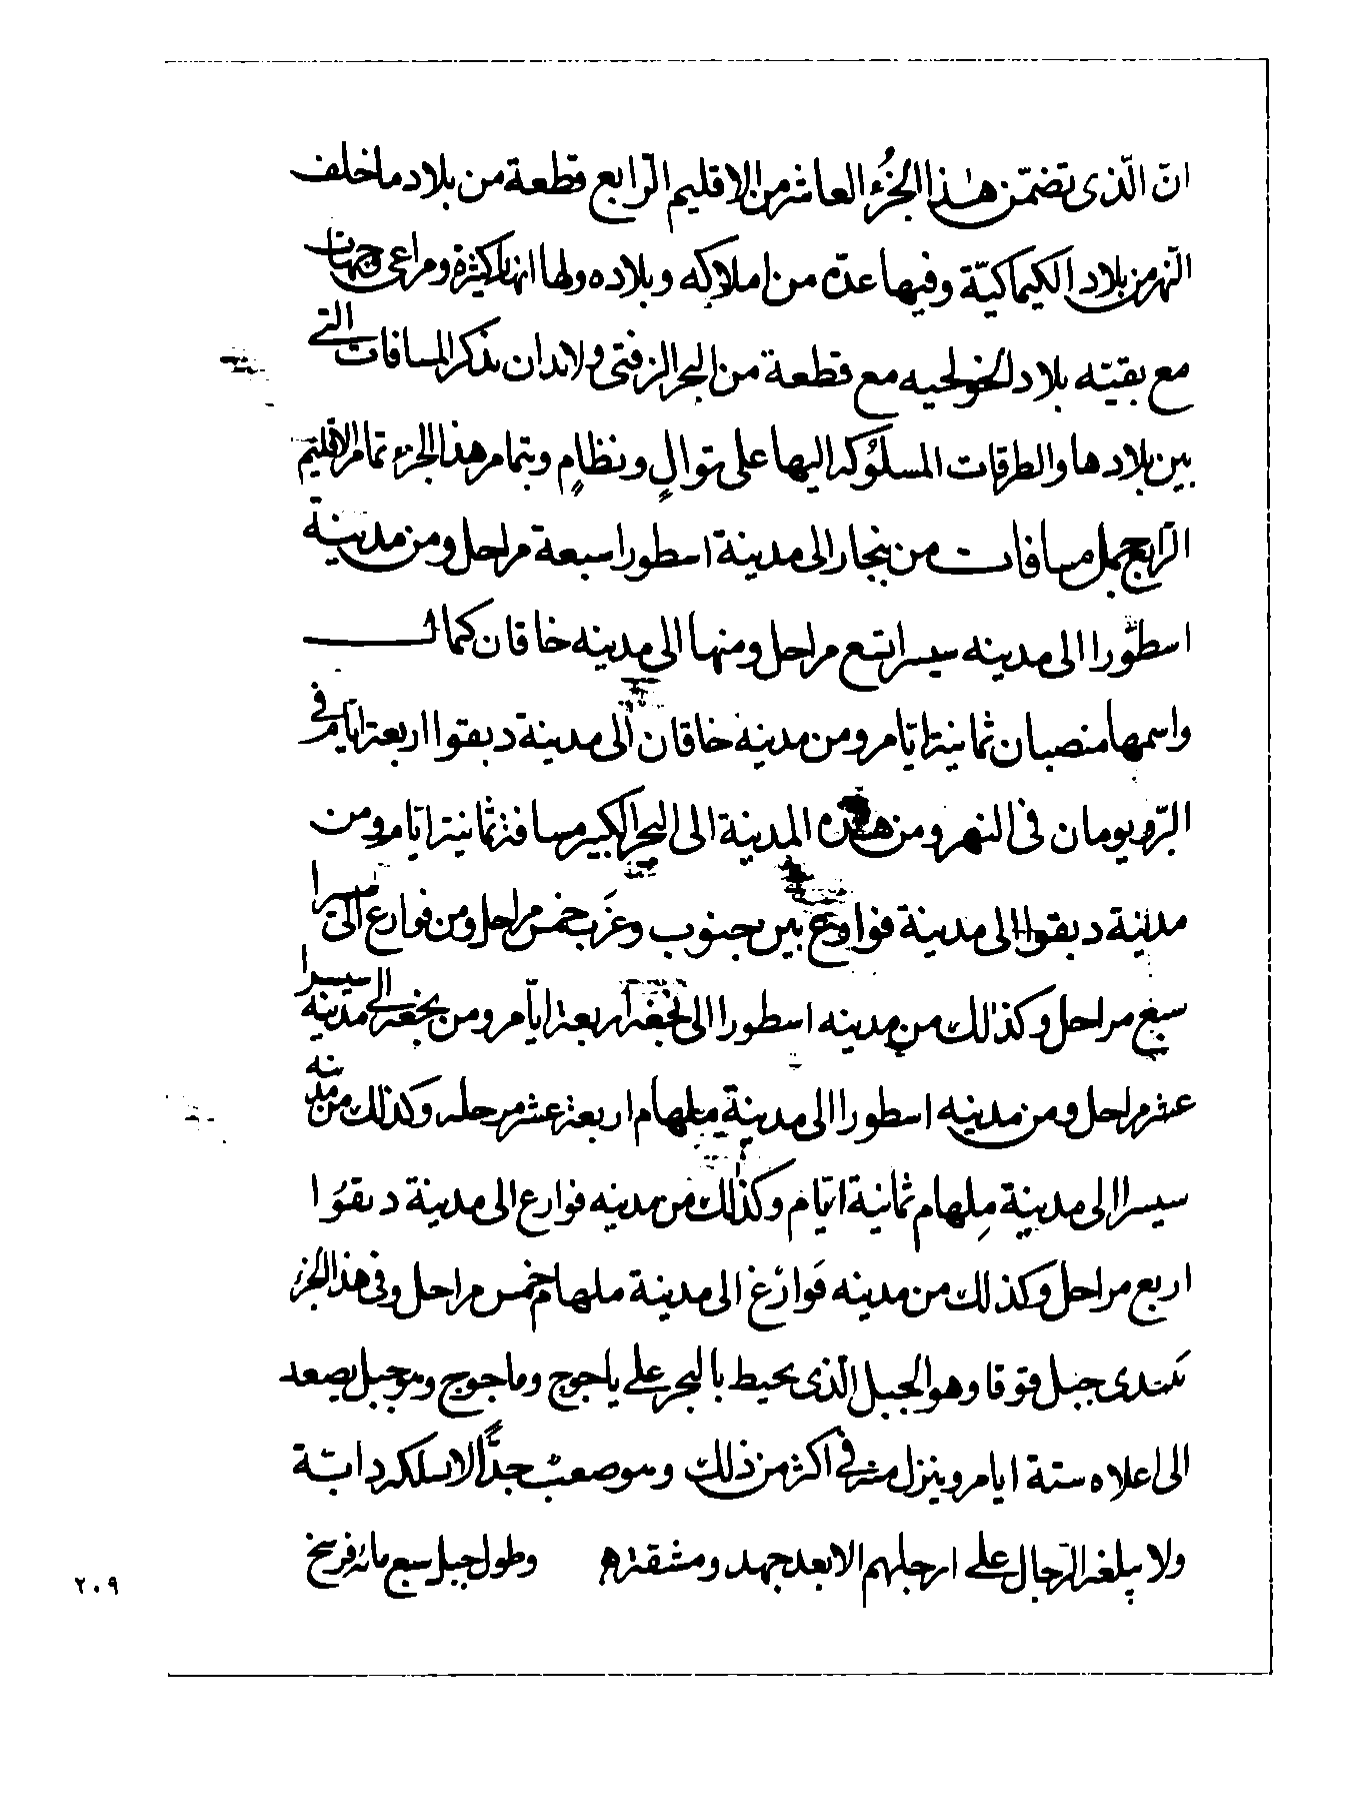 انّ الّذى تضمّن هٰذا الجُزْء العاشر من الاقليم الرّابع قطعة من بلاد ما خلف
النّهر من بلاد الكيماكيّة وفيها عدّه من املاكه وبلاده ولها انهار كثيرة ومراعى وجهات
مع بقيّه بلاد الخولحيه مع قطعة من البحر الزفتى ولابدان نذكر المسافات التے
بين بلادها والطرقات المسلوُكه اليها على توالٍ ونظامٍ وبتمام هذا الجزء تمام الاقليم
الرّابع جمل مسافات من بنجار الى مدينة اسطورا سبعة مراحل ومن مدينة
اسطُورا الى مدينه سيسرا تسع مراحل ومنها الى مدينه خاقان كماك
واسمها منصبان ثمانية ايّام ومن مدينه خاقان الى مدينة دبقوا اربعة ايّام فى
البرّ ويومان فى النهر ومن هذه المدينة الى البحر الكبير مسافة ثمانية ايّام ومن
مدينة دبقوا الى مدينة فوارع بين جنوب وغَرب خمس مراحل ومن فوارع الى سيسرا
سبع مراحل وكذلك من مدينه اسطورا الى نجغه اربعة ايّام ومن نجغه الے مدينه سيسرا
عشر مراحل ومن مدينه اسطورا الى مدينة ملهام اربعة عشر مرحله وكذلك من مدينه
سيسرا الى مدينة مِلهام ثمانية ايّام وكذلك من مدينه فوارع الى مدينة دبقوُا
اربع مراحل وكذلك من مدينه فَوارَغ الى مدينة ملهام خمس مراحل وفى هذا الجزء
يبتدى جبل قوقا وهو الجبل الّذى يحيط بالبحر علے ياجوج وماجوج وهو جبل يصعد
الى اعلاه ستة ايام وينزل منه فى اكثر من ذلك وهو صعب جدًّا لا تسلكه دابّة
ولا يبلغه الرّجال علے ارجلهم الا بعد جهد ومشقة وطول جبل سبع مائه فرسخ
٢٠٩